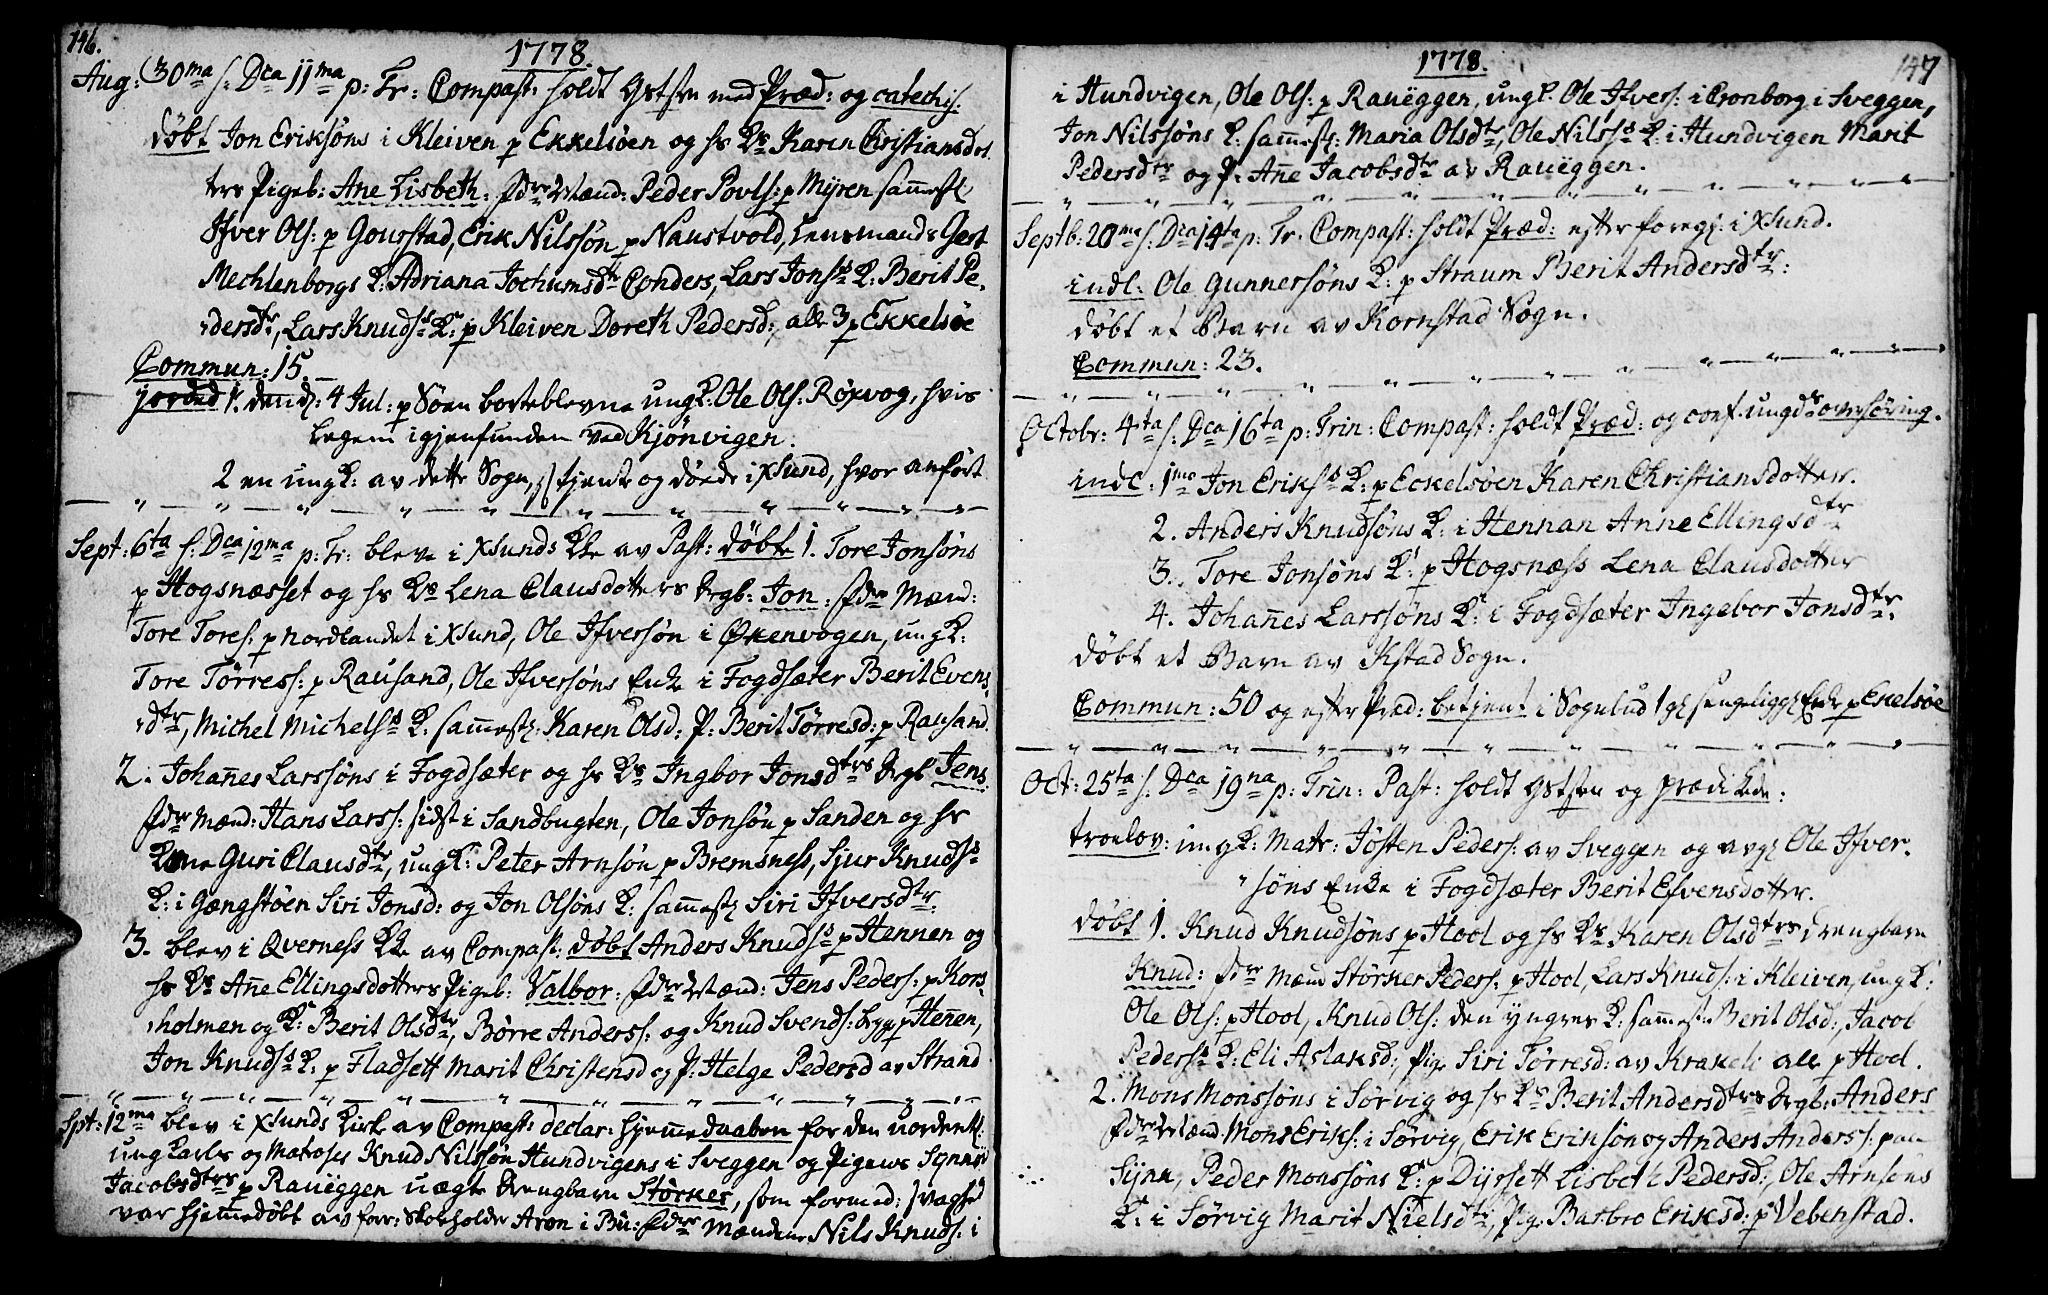 146.
1778.
Aug: 30ma s: Dca 11ma p: Tr: Compast: holdt Gstsen med Præd: og catechis:
døbt Jon Eriksøns i Kleiven p Ekkelsøen og hs Ks Karen Christiansdot
ters Pigeb: Ane Lisbeth: fdre Mænd: Peder Povls: p Myren sammestz
Ifver Ols: p Gourstad, Erik Nilssøn p Naustvold, Lensmands Gert
Mechlenborgs K: Adriana Jochumsdtr Conders, Lars Jonss K: Berit Pe,
dersdtr, Lars Knudss K: p Kleiven Doreth Pedersd: alle 3 p Ekkelsøe
Commun: 15.
jorded 1. dend: 4 Jul: p Søen borteblevne ung K: Ole Ols: Røxvog, hvis
Legem igjenfunden ved Kjønvigen.
2 en ung K: av dette Sogn, tjente og døde i Xsund, hvor anført
Sept: 6ta s: Dca 12ma p: Tr: bleve i Xsunds Kke av Past: døbte 1. Tore Jonsøns
p Hogsnæsset og hs Ks Lena Clausdotters Drgb: Jon: fdre Mænd:
Tore Tores: p Nordlandet i Xsund, Ole Ifversøn i Økenvogen, ung K:
Tore Tørress: p Rausand, Ole Ifversøns Enke i Fogdsæter Berit Evens,
dtr, Michel Michelss K: sammestz Karen Olsd: P: Berit Tørresd: p Rausand.
2. Johannes Larssøns i Fogdsæter og hs Ks Ingbor Jonsdtrs Drgb Jens
fdre Mænd: Hans Larss: sidst i Sandbugten, Ole Jonsøn p Sanden og hs
Kone Guri Clausdtr, ung K: Peter Arnsøn p Bremsness, Sjur Knudss
K: i Gængstøen Siri Jonsd: og Jon Olsøns K: sammestz Siri Ifversdtr.
3. blev i Qverness Kke av Compast: døbt Anders Knudss p Hennen og
hs Ks Anne Ellingsdotters Pigeb: Valbor: fdre Mænd: Jens Peders: p Kors,
holmen og K: Berit Olsdtr, Børre Anderss: og Knud Svends: begge p Henen,
Jon Knudss K: p Fladsett Marit Christensd og P: Helge Pedersd av Strand
Spt: 12ma blev i Xsunds Kirke av Compast: declar: hjemmedaaben for den uordentl:
ung Karls og Matroses Knud Nilssøn Hundvigens i Sveggen og Pigens Synnøv
Jacobsdtrs p Raueggen uægte Drengbarn Størker, som formed: svaghed
var hjemmedøbt av forr: Skoleholder Aron i Bu: fdre Mændene Nils Knuds: i
147
1778.
i Hundvigen, Ole Ols: p Raueggen, ung K: Ole Ifvers: i Cronborg i Sveggen,
Jon Nilssøns K: sammestz: Maria Olsdtr, Ole Nilss K: i Hundvigen Marit
Pedersdtr og P: Anne Jacobsdtr av Raueggen.
Septb: 20ma s: Dca 14ta p: Tr. Compast: holdt Præd: efter foreg: i Xsund.
indl: Ole Gunnersøns K: p Straum Berit Andersdtr:
døbt et Barn av Kornstad Sogn.
Commun: 23.
Octobr: 4ta s: Dca 16ta p: Trin: Compast: holdt Præd: og conf. ungds overhøring.
indl: 1mo Jon Erikss K: p Eckelsøen Karen Christiansdotter.
2. Anders Knudsøns K: i Hennan Anne Ellingsdtr
3. Tore Jonsøns K: p Hogsnæss Lena Clausdotter
4. Johannes Larssøns K: i Fogdsæter Ingebor Jonsdtr.
døbt et Barn av Kstad Sogn.
Commun: 50 og efter Præd: betjent i Sognebud 1 sengeligg: Enke p Ekelsøe
Oct: 25ta s: Dca 19na p: Trin: Past: holdt Gstsen og prædikede:
troelov: ung K: Matr: Jøsten Peders: av Sveggen og avg: Ole Ifver,
søns Enke i Fogdsæter Berit Efvensdotter.
døbt 1. Knud Knudsøns p Hool og hs Ks Karen Olsdtrs Drengbarn
Knud: fdre Mænd Størker Peders: p Hool, Lars Knuds: i Kleiven, ung K:
Ole Ols: p Hool, Knud Ols: den yngres K: sammest: Berit Olsd:, Jacob
Pederss K: Eli Aslaksd:, Pige Siri Tørresd: av Krakeli alle p Hool.
2. Mons Monssøns i Sørvig og hs Ks Berit Andersdtrs Drgb: Anders
fdre Mænd Mons Eriks: i Sørvig, Erik Eriksøn og Anders Anderss: paa
Synn, Peder Monssøns K: p Dyrsett Lisbeth Pedersd:, Ole Arnsøns
K: i Sørvig Marit Nielsdtr, Pig: Barbro Eriksd: p Vebenstad.